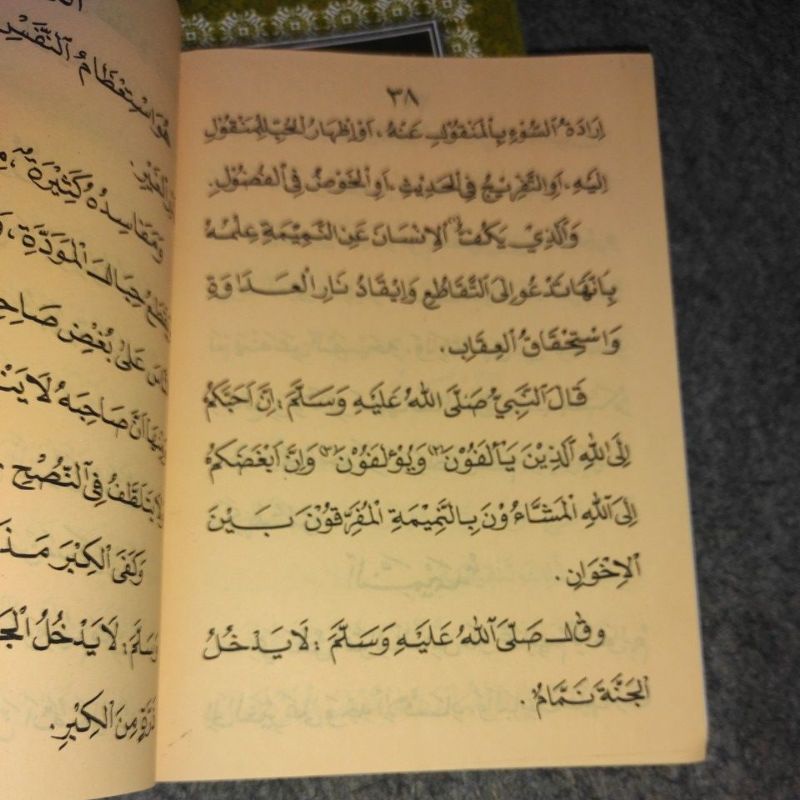 ٣٨
اِرَادَةُ السُّوْءِ بِالْمَنْقُوْلِ عَنْهُ، اَوْ اِظْهَارُ الْحُبِّ لِلْمَنْقُوْلِ
اِلَيْهِ، اَوِ التَّفْرِيْجُ فِى الْحَدِيْثِ، اَوِ الْخَوْضُ فِى الْفُضُوْلِ.
وَالَّذِيْ يَكُفُّ(١) الْاِنْسَانَ عَنِ النَّمِيْمَةِ عِلْمُهُ
بِاَنَّهَا تَدْعُوْ اِلَى التَّقَاطُعِ وَاِيْقَادُ نَارِ الْعَدَاوَةِ
وَاسْتِحْقَاقُ الْعِقَابِ.
قَالَ النَّبِيُّ صَلَّى اللهُ عَلَيْهِ وَسَلَّمَ: اِنَّ اَحَبَّكُمْ
اِلَى اللهِ الَّذِيْنَ يَأْلَفُوْنَ(٢) وَيُؤْلَفُوْنَ(٣) وَاِنَّ اَبْغَضَكُمْ
اِلَى اللهِ الْمَشَّاءُوْنَ بِالنَّمِيْمَةِ الْمُفَرِّقُوْنَ بَيْنَ
الْاِخْوَانِ.
وَقَالَ صَلَّى اللهُ عَلَيْهِ وَسَلَّمَ: لَا يَدْخُلُ
الْجَنَّةَ نَمَّامٌ.
هُوَ اسْتِعْظَامُ النَّفْسِ
الْغَيْرِ.
وَمَفَاسِدُهُ كَثِيْرَةٌ،
حِبَالَ الْمَوَدَّةِ،
عَلٰى بُغْضِ
اَنَّ صَاحِبَهُ لَا
يَتَلَطَّفُ فِى النُّصْحِ
وَكَفَى الْكِبْرَ
وَسَلَّمَ: لَا يَدْخُلُ
ذَرَّةٍ مِنَ الْكِبْرِ.